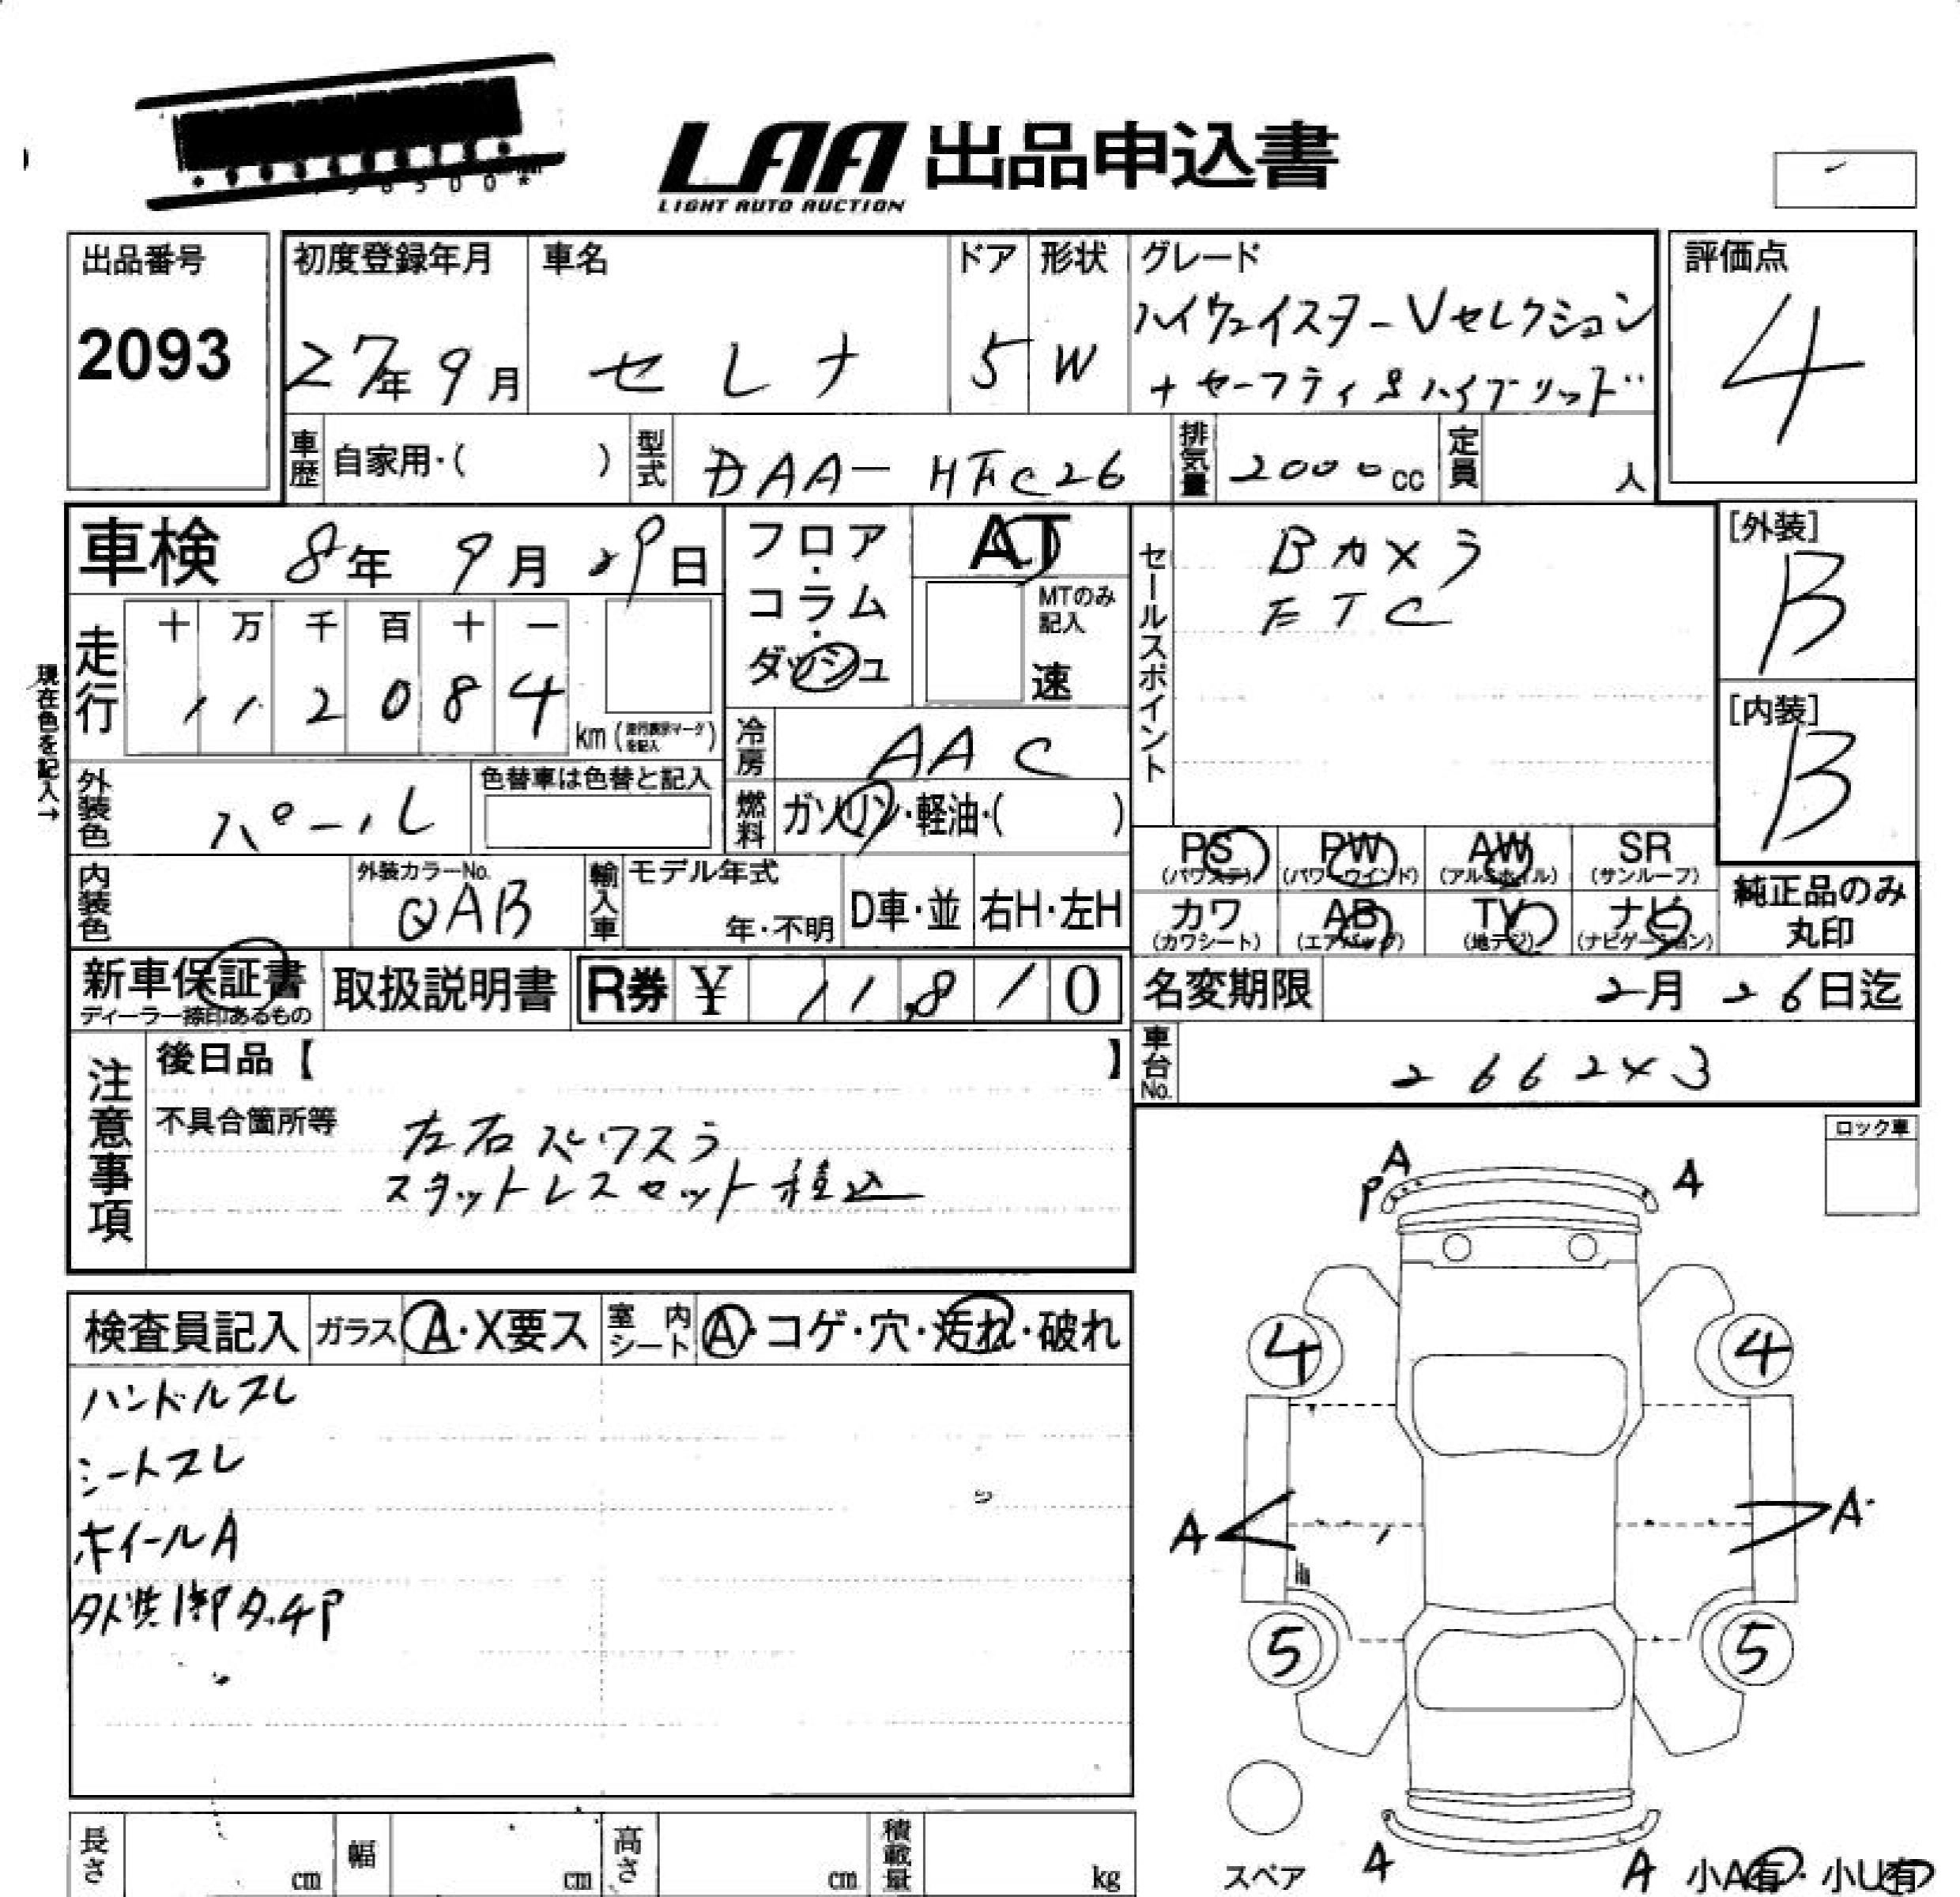 LAA 出品申込書
LIGHT AUTO AUCTION
出品番号
2093
初度登録年月
27年9月
車名
セレナ
ドア
5
形状
W
グレード
ハイウェイスターVセレクション
+セーフティ&ハイブリッド
評価点
4
車歴 自家用・( )
型式 DAA-HFC26
排気量 2000cc
定員 人
車検 8年9月29日
フロア・コラム・ダッシュ
AT
MTのみ記入
速
セールスポイント
Bカメラ
ETC
[外装]
B
[内装]
B
現在色を記入→
走行
十 万 千 百 十 一
1 1 2 0 8 4 km (走行表示マークを記入)
冷房 AAC
外装色 パール
色替車は色替と記入
燃料 ガソリン・軽油・( )
PS (パワステ) PW (パワーウインド) AW (アルミホイル) SR (サンルーフ)
カワ (カワシート) AB (エアバッグ) TV (地デジ) ナビ (ナビゲーション)
純正品のみ丸印
内装色
外装カラーNo.
QAB
輸入車
モデル年式
年・不明
D車・並
右H・左H
新車保証書
ディーラー捺印あるもの
取扱説明書
R券 ¥ 11,810
名変期限 2月26日迄
車台No. 2662×3
注意事項
後日品【 】
不具合箇所等
左右パワスラ
スタットレスセット積込
ロック車
A
P
A
検査員記入 ガラス A・X要ス 室内シート A・コゲ・穴・汚れ・破れ
ハンドルスレ
シートスレ
ホイールA
外装脚タッチP
4 4
A A
5 5
スペア
A
A
小A有・小U有
長さ cm 幅 cm 高さ cm 積載量 kg